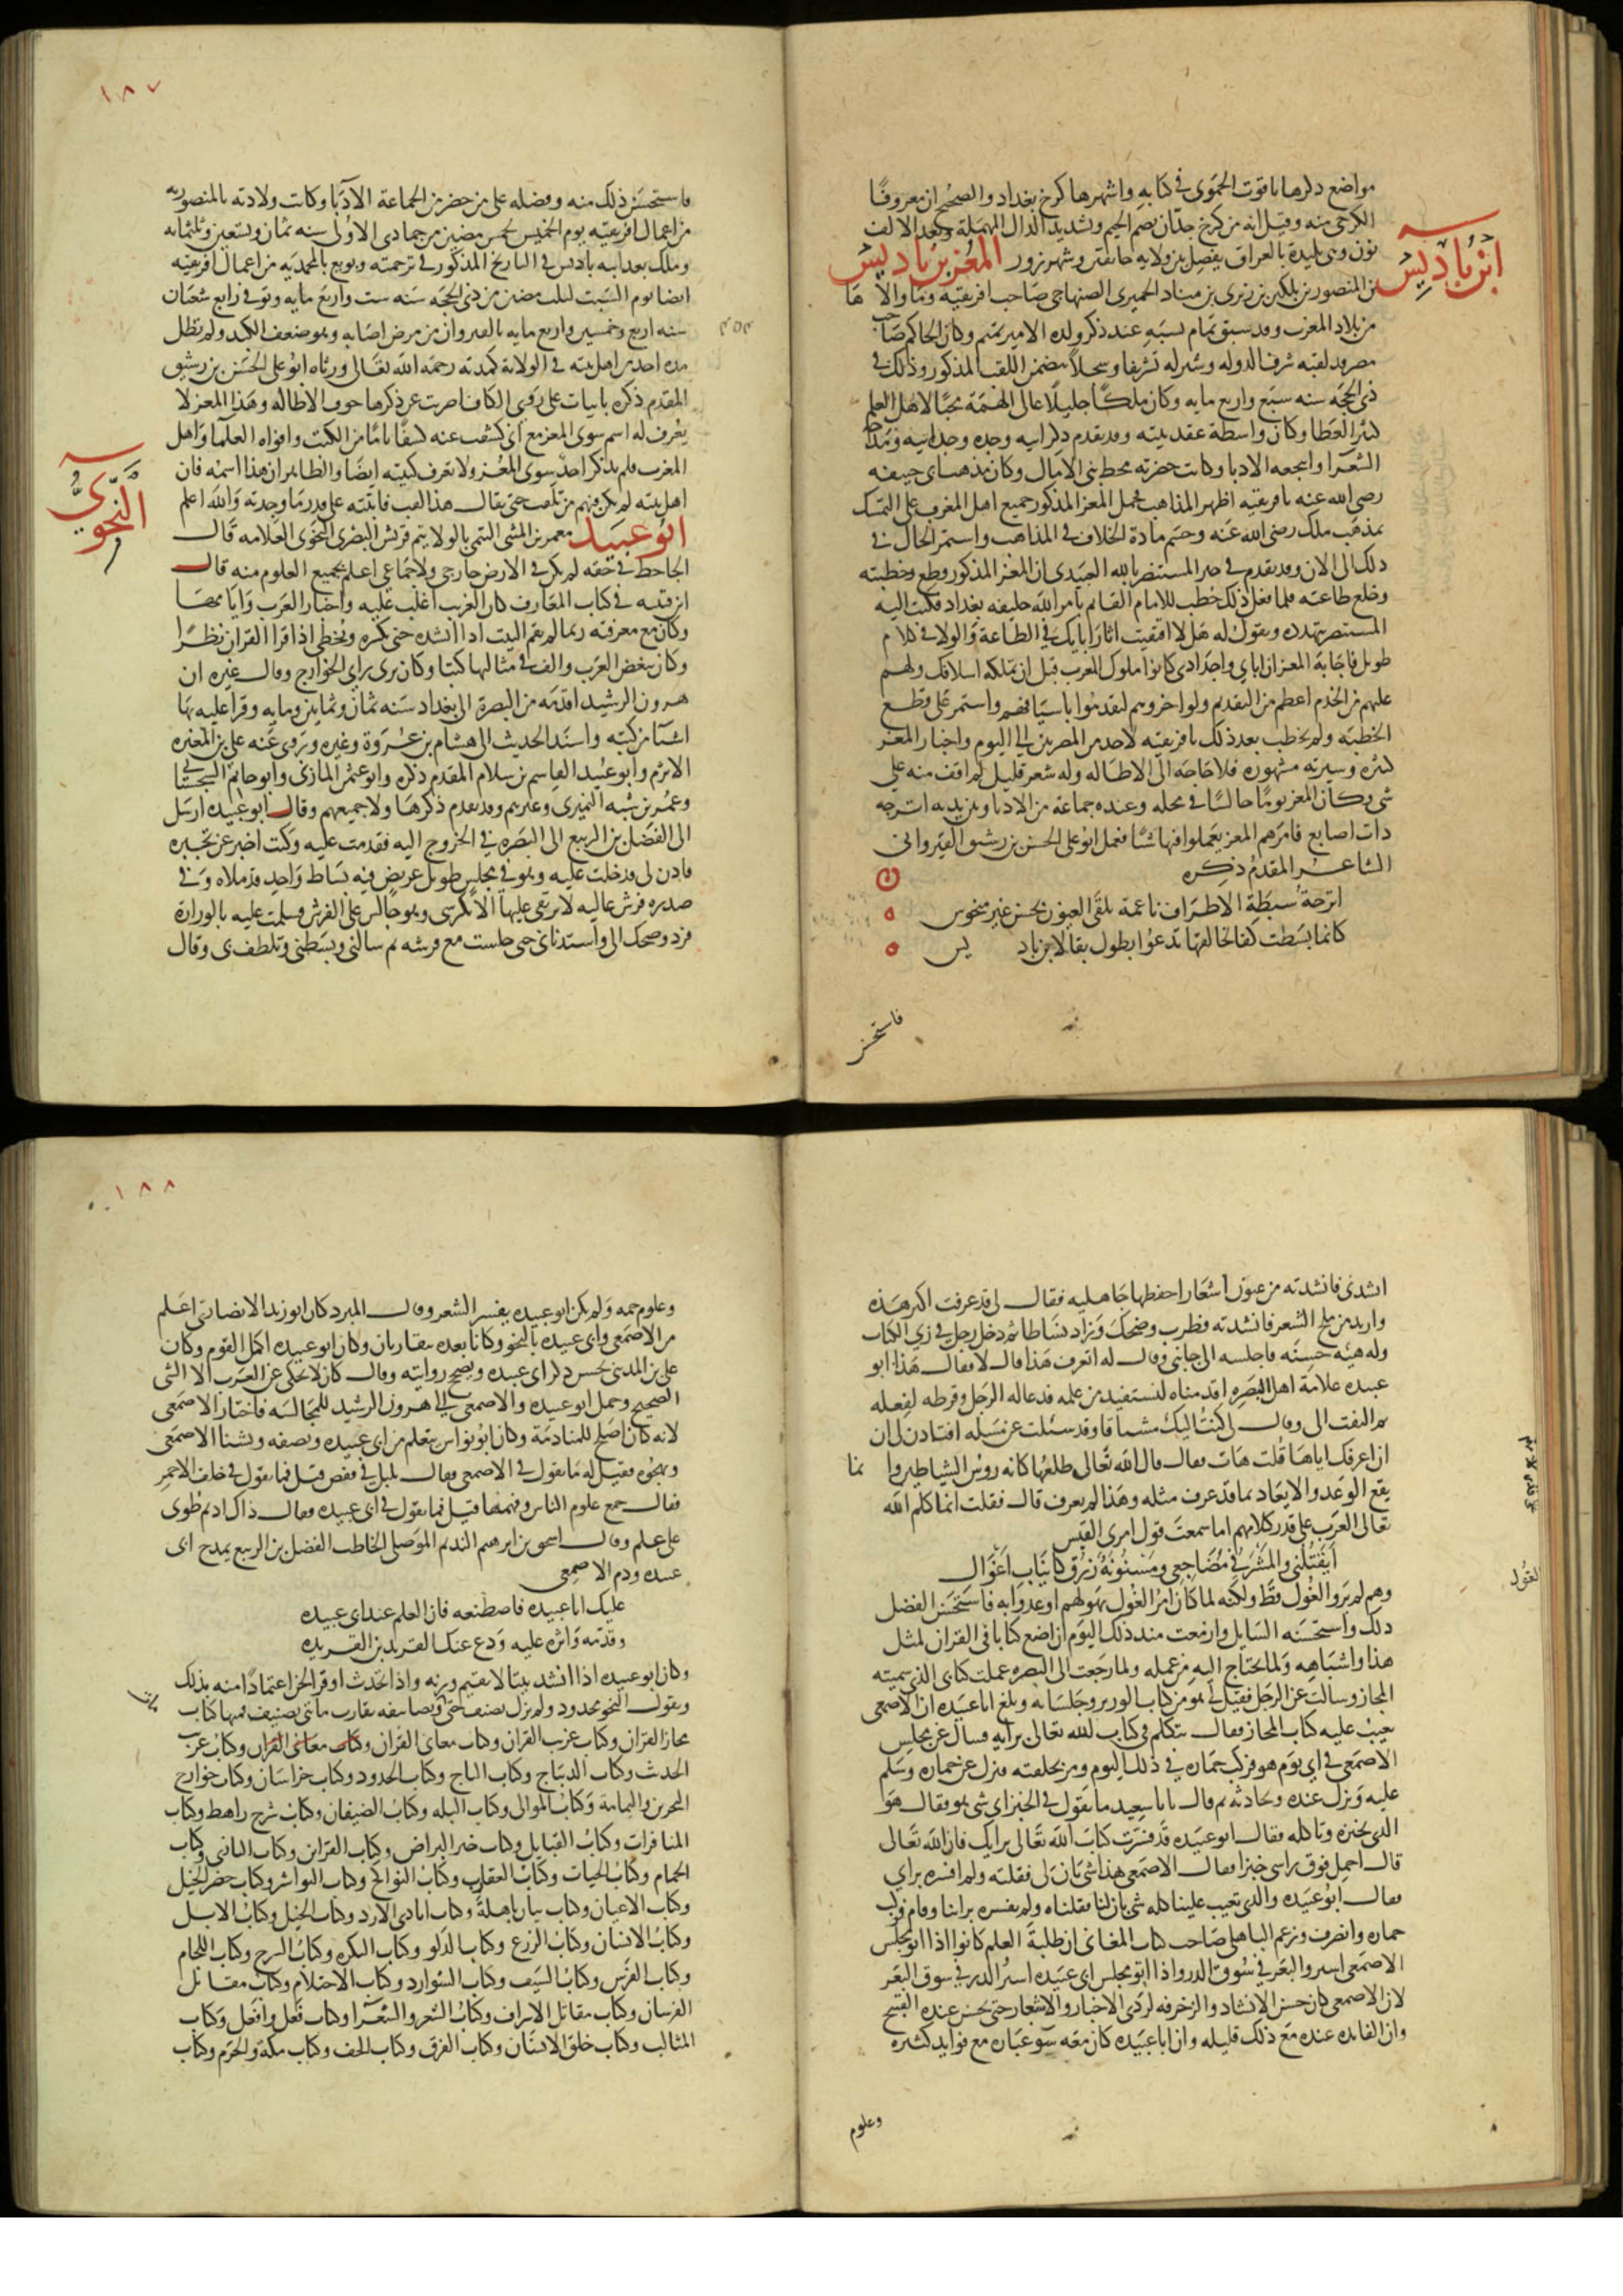 مواضع ذكرها ياقوت الحموى فى كتابه واشهرها كرخ بغداد والصحيح ان معروفًا
الكرخى منه وقيل انه من كرخ جدّان بضم الجيم وتشديد الدال المهملة وبعد الالف
نون وهى بليدة بالعراق يفصل بين ولايه خانقين وشهرزور المعز بن باديس
ابن باديس
بن المنصور بن بلكين بن زيرى بن مناد الحميرى الصنهاجى صاحب افريقيه وما والاها
من بلاد المغرب وقد سبق تمام نسبه عند ذكر ولده الامير تميم وكان الحاكم صاحب
مصر قد لقبه شرف الدوله وسير له تشريفا وسجلًا يتضمن اللقب المذكور وذلك فى
ذى الحجه سنه سبع واربع مايه وكان ملكًا جليلًا عالى الهمّة محبًا لاهل العلم
كثير العطا وكان واسطة عقد بيته وقد تقدم ذكر ابيه وجده وجد ابيه ومدحه
الشعرا وانتجعه الادبا وكانت حضرته محط بنى الامال وكان مذهب ابى حنيفه
رضى الله عنه بافريقيه اظهر المذاهب فحمل المعز المذكور جميع اهل المغرب على التمسك
بمذهب ملك رضى الله عنه وحسم مادة الخلاف فى المذاهب واستمر الحال فى
ذلك الى الان وقد تقدم فى خبر المستنصر بالله العبيدى ان المعز المذكور قطع خطبته
وخلع طاعته فلما فعل ذلك خطب للامام القايم بامر الله خليفه بغداد فكتب اليه
المستنصر يتهدده ويقول له هلا اقتفيت اثار ابايك فى الطاعة والولا فى كلام
طويل فاجابه المعز ان اباى واجدادى كانوا ملوك المغرب قبل ان تملكه اسلافك ولهم
عليهم من الخدم اعظم من التقديم ولو اخروهم لتقدموا باسيافهم واستمر على قطع
الخطبه ولم يخطب بعد ذلك بافريقيه لاحد من المصريين الى اليوم واخبار المعز
كثيره وسيرته مشهوره فلا حاجه الى الاطاله وله شعر قليل لم اقف منه على
شى وكان المعز يومًا جالسًا فى مجلسه وعنده جماعة من الادبا وبين يديه اترجه
ذات اصابع فامرهم المعز يعملوا فيها شيًا فعمل ابو على الحسن بن رشيق القيروانى
الشاعر المقدم ذكره
اترجة سبطة الاطراف ناعمة تلقى العيون بحسن غير منحوس
كانما بسطت كفا لخالقها تدعوا بطول بقا لابن باديس
فاستحسن
١٨٧
فاستحسن ذلك منه وفضله على من حضر من الجماعة الادبا وكانت ولادته بالمنصوريه
من اعمال افريقيه يوم الخميس لخمس مضين من جمادى الاولى سنه ثمان وتسعين وثلثمايه
وملك بعد ابيه باديس فى التاريخ المذكور فى ترجمته وبويع بالمحمديه من اعمال افريقيه
ايضا يوم السبت لثلث مضين من ذى الحجه سنه ست واربع مايه وتوفى رابع شعبان
سنه اربع وخمسين واربع مايه بالقيروان من مرض اصابه وهو ضعف الكبد ولم تطل
٤٥٤
مده احد من اهل بيته فى الولاية كمدته رحمه الله تعالى ورثاه ابو على الحسن بن رشيق
المقدم ذكره بابيات على روى الكاف اضربت عن ذكرها خوف الاطاله وهذا المعز لا
يعرف له اسم سوى المعز مع انى كشفت عنه كشفًا تامًا من الكتب وافواه العلما واهل
المغرب فلم يذكر احد سوى المعز ولا تعرف كنيته ايضا والظاهر ان هذا اسمه فان
اهل بيته لم يكن فيهم من تلقب حتى يقال هذا لقب فاثبته على قدر ما وجدته والله اعلم
النحوى
ابو عبيد معمر بن المثنى التيمى بالولا تيم قريش البصرى النحوى العلامه قال
الجاحظ فى حقه لم يكن فى الارض خارجى ولا جماعى اعلم بجميع العلوم منه قال
ابن قتيبه فى كتاب المعارف كان الغريب اغلب عليه واخبار العرب وايامها
وكان مع معرفته ربما لم يقم البيت اذا انشده حتى يكسره ويخطى اذا قرا القران نظرًا
وكان يبغض العرب والف فى مثالبها كتبا وكان يرى راى الخوارج وقال غيره ان
هرون الرشيد اقدمه من البصرة الى بغداد سنه ثمان وثمانين ومايه وقرا عليه بها
اشيا من كتبه واسند الحديث الى هشام بن عروة وغيره وروى عنه على بن المغيره
الاثرم وابو عبيد القاسم بن سلام المقدم ذكره وابو عثمن المازنى وابو حاتم السجستانى
وعمر بن شبه النميرى وغيرهم وقد تقدم ذكرها ولا جميعهم وقال ابو عبيده ارسل
الى الفضل بن الربيع الى البصره فى الخروج اليه فقدمت عليه وكنت اخبر عن تجبره
فاذن لى فدخلت عليه وهو فى مجلس طويل عريض فيه بساط واحد قد ملاه وفى
صدره فرش عاليه لا يرتقى عليها الا بكرسى وهو جالس على الفرش فسلمت عليه بالوزارة
فرد وضحك الى واستدنانى حتى جلست مع فرشه ثم سالنى وبسطنى وتلطف بى وقال
انشدنى فانشدته من عيون اشعار احفظها جاهليه فقال لى قد عرفت اكثر هذه
واريد من ملح الشعر فانشدته فطرب وضحك وزاد نشاطا ثم دخل رجل فى زى الكتاب
وله هيئه حسنه فاجلسه الى جانبى وقال له اتعرف هذا قال لا فقال هذا ابو
عبيده علامة اهل البصره اقدمناه لنستفيد من علمه فدعا له الرجل وقرظه لفعله
ثم التفت الى وقال لى كنت اليك مشتاقا وقد سئلت عن مسئله افتاذن لى ان
ان اعرفك اياها قلت هات فقال قال الله تعالى طلعها كانه روس الشياطين وانما
يقع الوعد والايعاد بما قد عرف مثله وهذا لم يعرف قال فقلت انما كلم الله
تعالى العرب على قدر كلامهم اما سمعت قول امرى القيس
ايقتلنى والمشرفى مضاجعى ومسنونة زرق كانياب اغوال
وهم لم يروا الغول قط ولكنه لما كان امر الغول يهولهم اوعدوا به فاستحسن الفضل
الغول
ذلك واستحسنه السايل وازمعت منذ ذلك اليوم ان اضع كتابا فى القران لمثل
هذا واشباهه ولما يحتاج اليه من عمله ولما رجعت الى البصره عملت كتابى الذى سميته
المجاز وسالت عن الرجل فقيل لى هو من كتاب الوزير وجلسائه وبلغ ابا عبيده ان الاصمعى
يعيب عليه كتاب المجاز فقال يتكلم فى كتاب الله تعالى برايه فسال عن مجلس
الاصمعى فى اى يوم هو فركب حماره فى ذلك اليوم ومر بحلقته فنزل عن حماره وسلم
عليه ونزل عنده وحادثه ثم قال يابا سعيد ما تقول فى الخبز اى شى هو فقال هو
الذى نخبزه وناكله فقال ابو عبيده قد فسرت كتاب الله تعالى برايك فان الله تعالى
قال احمل فوق راسى خبزا فقال الاصمعى هذا شى بان لى فقلته ولم افسره براى
فقال ابو عبيده والذى تعيب علينا كله شى بان لنا فقلناه ولم نفسره براينا وقام فركب
حماره وانصرف وزعم الباهلى صاحب كتاب المعانى ان طلبة العلم كانوا اذا اتوا مجلس
الاصمعى اشتروا البعر فى سوق الدر واذا اتوا مجلس ابى عبيده اشتروا الدر فى سوق البعر
لان الاصمعى كان حسن الانشاد والزخرفه لردى الاخبار والاشعار حتى يحسن عنده القبيح
وان الفايده عنده مع ذلك قليله وان ابا عبيده كان معه سو عباره مع فوايد كثيره
وعلوم
١٨٨
وعلوم جمه ولم يكن ابو عبيده يفسر الشعر وقال المبرد كان ابو زيد الانصارى اعلم
من الاصمعى وابى عبيده بالنحو وكانا بعده يتقاربان وكان ابو عبيده اكمل القوم وكان
على بن المدينى يحسن ذكر ابى عبيده ويصحح روايته وقال كان لا يحكى عن العرب الا الشى
الصحيح وحمل ابو عبيده والاصمعى الى هرون الرشيد للمجالسه فاختار الاصمعى
لانه كان اصلح للمنادمة وكان ابو نواس يتعلم من ابى عبيده ويصفه ويشنا الاصمعى
ويهجوه فقيل له ما تقول فى الاصمعى فقال بلبل فى قفص قيل فما تقول فى خلف الاحمر
فقال جمع علوم الناس وفهمها قيل فما تقول فى ابى عبيده فقال ذاك اديم طوى
على علم وقال اسحق بن ابرهيم النديم الموصلى يخاطب الفضل بن الربيع يمدح ابى
عبيده وذم الاصمعى
عليك ابا عبيده فاصطنعه فان العلم عند ابى عبيده
وقدمه واثره عليه ودع عنك القريد بن القريده
وكان ابو عبيده اذا انشد بيتا لا يقيم وزنه واذا تحدث او قرا لحن اعتمادًا منه بذلك
ويقول النحو محدود ولم يزل يصنف حتى وتصانيفه تقارب مائتى تصنيف فمنها كتاب
مجاز القران وكتاب غريب القران وكتاب معانى القران وكتاب معانى القران وكتاب غريب
الحديث وكتاب الديباج وكتاب التاج وكتاب الحدود وكتاب خراسان وكتاب خوارج
البحرين واليمامة وكتاب الموالى وكتاب البله وكتاب الضيفان وكتاب مرج راهط وكتاب
المنافرات وكتاب القبايل وكتاب خبر البراض وكتاب القراين وكتاب البازى وكتاب
الحمام وكتاب الحيات وكتاب العقارب وكتاب النوايح وكتاب النواشز وكتاب حضر الخيل
وكتاب الاعيان وكتاب بيان باهلة وكتاب ايادى الازد وكتاب الخيل وكتاب الابل
وكتاب الانسان وكتاب الزرع وكتاب الدلو وكتاب البكره وكتاب السرج وكتاب اللجام
وكتاب الفرس وكتاب السيف وكتاب الشوارد وكتاب الاحتلام وكتاب مقاتل
الفرسان وكتاب مقاتل الاشراف وكتاب الشعر والشعرا وكتاب فعل وافعل وكتاب
المثالب وكتاب خلق الانسان وكتاب الفرق وكتاب الخف وكتاب مكة والحرم وكتاب